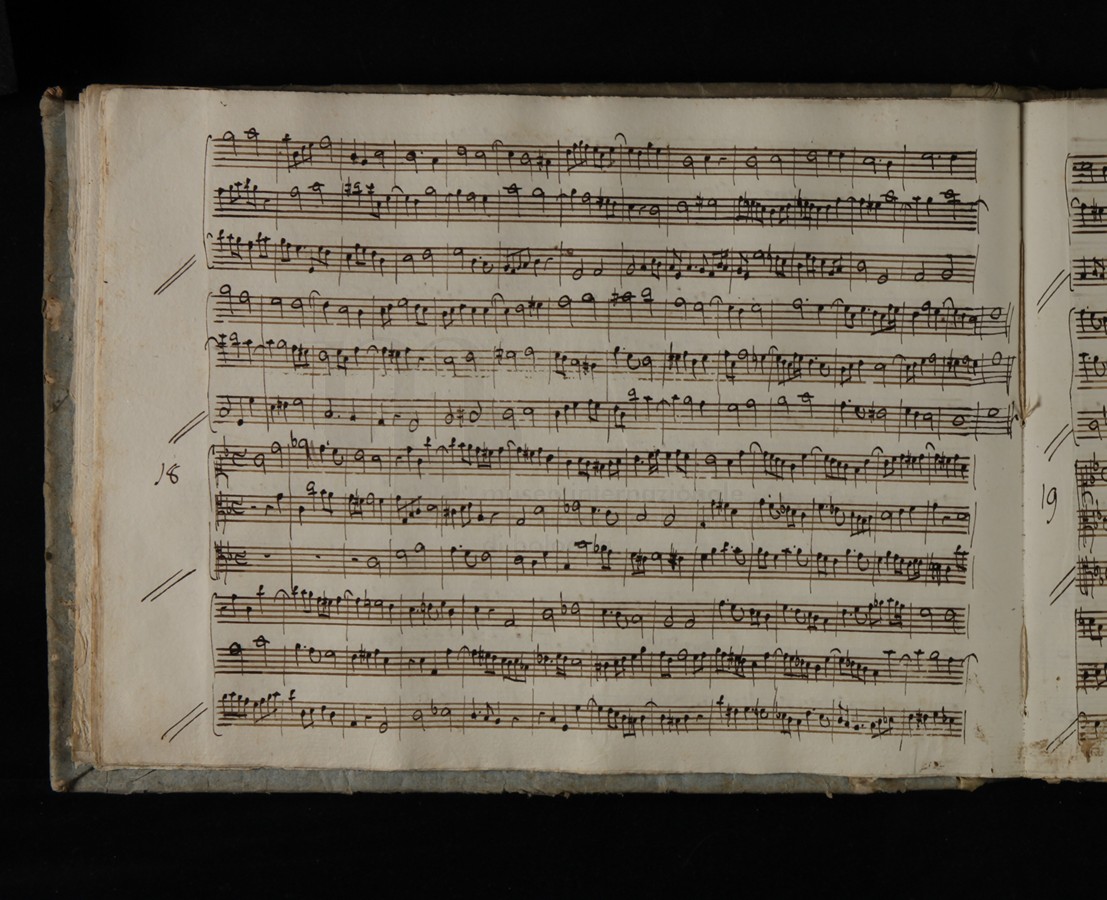 18
19